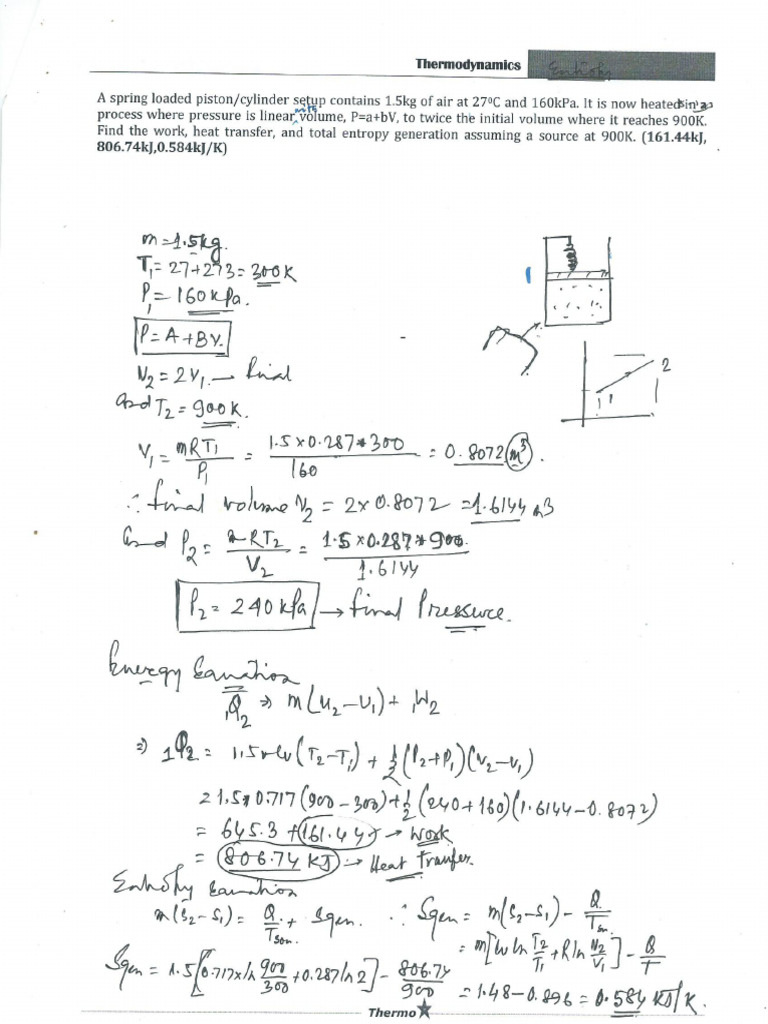 Thermodynamics
Entropy
A spring loaded piston/cylinder setup contains 1.5kg of air at 27⁰C and 160kPa. It is now heated in a
process where pressure is linear with volume, P=a+bV, to twice the initial volume where it reaches 900K.
Find the work, heat transfer, and total entropy generation assuming a source at 900K. (161.44kJ,
806.74kJ,0.584kJ/K)
m = 1.5kg.
T₁ = 27+273 = 300K
P₁ = 160 kPa.
P = A + BV.
V₂ = 2V₁ → final
and T₂ = 900K.
V₁ = mRT₁/P₁ = 1.5 × 0.287 * 300/160 = 0.8072 m³.
∴ final volume V₂ = 2 × 0.8072 = 1.6144 m3
and P₂ = mRT₂/V₂ = 1.5 × 0.287 * 900/1.6144
P₂ = 240 kPa → final Pressure.
1
2
Energy Equation
₁Q₂ ⇒ m(u₂ - u₁) + ₁W₂
⇒ 1Q₂ = 1.5 × Cv (T₂ - T₁) + 1/2 (P₂ + P₁)(V₂ - V₁)
= 1.5 × 0.717 (900 - 300) + 1/2 (240 + 160)(1.6144 - 0.8072)
= 645.3 + 161.44 → Work
= 806.74 KJ → Heat Transfer.
Entropy Equation
m(S₂ - S₁) = Q/Tsou. + Sgen. ∴ Sgen = m(S₂ - S₁) - Q/Tsou.
= m[Cv ln T₂/T₁ + R ln V₂/V₁] - Q/T
Sgen = 1.5 [0.717 × ln 900/300 + 0.287 ln 2] - 806.74/900 = 1.48 - 0.896 = 0.584 KJ/K.
Thermo